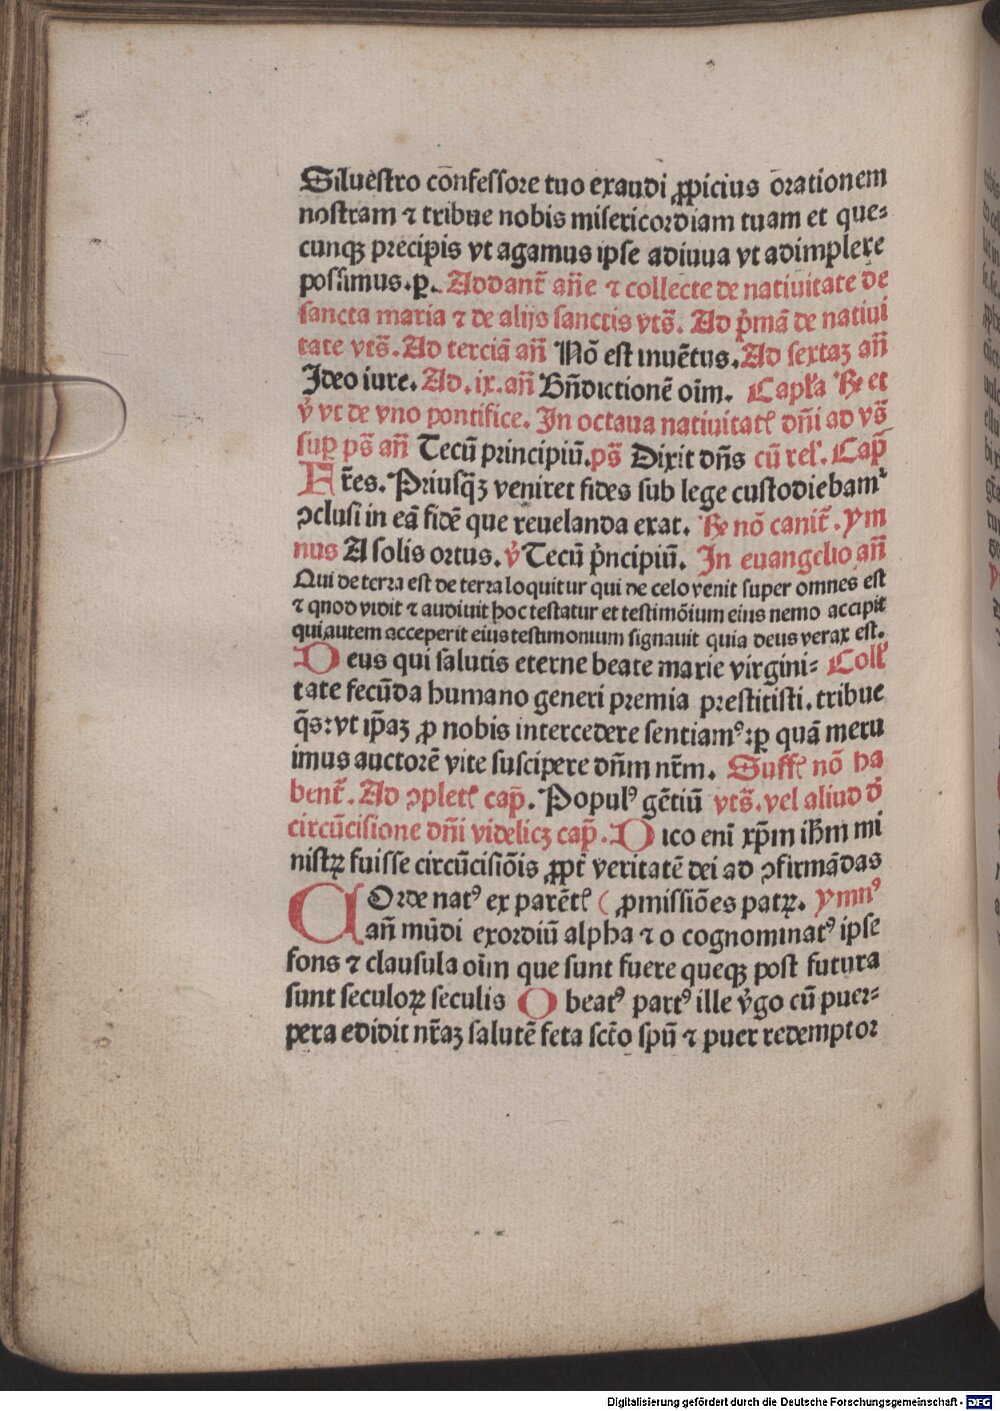 Siluestro cōnfessore tuo exaudi ꝓpicius ōrationem
nostram ⁊ tribue nobis misericordiam tuam et que⸗
cunqꝫ precipis vt agamus ipse adiuua vt adimplere
possimus.ꝑ. Addant̄ añe ⁊ collecte de natiuitate de
sancta maria ⁊ de alijs sanctis vts̄. Ad p̄mā de natiui
tate vts̄. Ad terciā añ Nō est inuētus. Ad sextaꝫ añ
Ideo iure. Ad .ix. añ Bn̄dictionē oīm. Capl̄a ꝶ et
v̄ vt de vno pontifice. In octaua natiuitatꝭ dn̄i ad vs̄
suꝑ ps̄ añ Tecū principiū. ps̄ Dixit dn̄s cū relꝭ. Cap̄
Fr̄es. Priusqꝫ̄ veniret fides sub lege custodiebamꝰ
ꝯclusi in eā fidē que reuelanda erat. ꝶ nō canit̄. ym
nus A solis ortus. v̄ Tecū p̄ncipiū. In euangelio añ
Qui de terra est de terra loquitur qui de celo venit super omnes est
⁊ quod vidit ⁊ audiuit hoc testatur et testimōium eius nemo accipit
qui autem acceperit eius testimonium signauit quia deus verax est.
Deus qui salutis eterne beate marie virgini⸗ Collꝭ
tate fecūda humano generi premia prestitisti. tribue
q̄s: vt ip̄aꝫ ꝓ nobis intercedere sentiamꝰ: ꝑ quā meru
imus auctorē vite suscipere dn̄m nr̄m. Suffꝭ nō ha
bent̄. Ad ꝯpletꝭ cap̄. Populꝰ gētiū vts̄. vel aliud d̄
circūcisione dn̄i videlicꝫ cap̄. Dico enī xp̄m ih̄m mi
nistꝝ fuisse circūcisiōis ꝓpt̄ veritatē dei ad ꝯfirmādas
COrde natꝰ ex parētꝭ ( ꝓmissiōes patꝝ. ymnꝰ
an̄ mūdi exordiū alpha ⁊ o cognominatꝰ ipse
fons ⁊ clausula oīm que sunt fuere queqꝫ post futura
sunt seculoꝝ seculis O beatꝰ partꝰ ille v̄go cū puer⸗
pera edidit nr̄aꝫ salutē feta sct̄o spū ⁊ puer redemptor
Digitalisierung gefördert durch die Deutsche Forschungsgemeinschaft - DFG